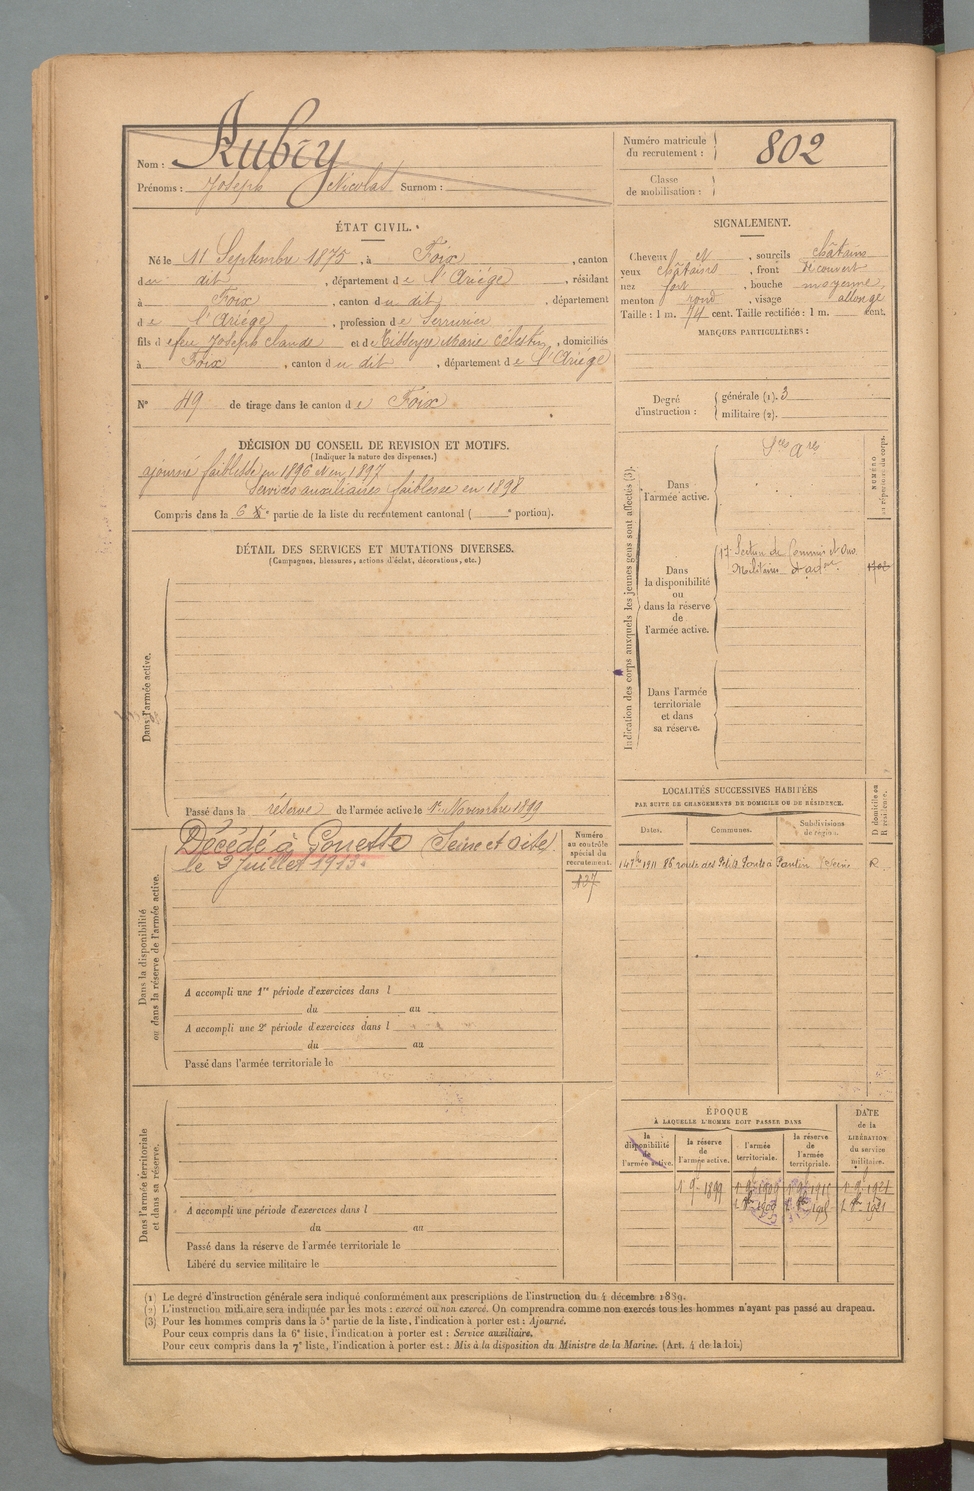 Nom : Rubry
Prénoms : Joseph Nicolas Surnom :
Numéro matricule du recrutement : 802
Classe de mobilisation :
ÉTAT CIVIL.
Né le 11 Septembre 1875, à Foix, canton
du dit, département de l'Ariége, résidant
à Foix, canton du dit, département
de l'Ariége, profession de Serrurier
fils d efeu Joseph Claude et de Tisseyre Marie Célestin, domiciliés
à Foix, canton du dit, département de l'Ariége
N° 49 de tirage dans le canton de Foix
SIGNALEMENT.
Cheveux et, sourcils châtains
yeux châtains, front découvert
nez fort, bouche moyenne,
menton rond, visage allongé
Taille : 1 m. 74 cent. Taille rectifiée : 1 m. cent.
MARQUES PARTICULIÈRES :
Degré d'instruction : générale (1). 3
militaire (2).
DÉCISION DU CONSEIL DE REVISION ET MOTIFS.
(Indiquer la nature des dispenses.)
ajourné faiblesse en 1896 et en 1897
Services auxiliaires faiblesse en 1898
Compris dans la 6e partie de la liste du recrutement cantonal ( e portion).
DÉTAIL DES SERVICES ET MUTATIONS DIVERSES.
(Campagnes, blessures, actions d'éclat, décorations, etc.)
Dans l'armée active.
Passé dans la réserve de l'armée active le 1er Novembre 1899
Indication des corps auxquels les jeunes gens sont affectés (3).
NUMÉRO
Dans l'armée active. Sces Ares
Dans la disponibilité ou dans la réserve de l'armée active.
17e Section de Commis et Ouv.
Militaires d'adon.
Dans l'armée territoriale et dans sa réserve.
Dans la disponibilité ou dans la réserve de l'armée active.
Décédé à Gonesse (Seine et Oise)
le 3 Juillet 1913.
Numéro au contrôle spécial du recrutement.
137
A accompli une 1re période d'exercices dans l
du au
A accompli une 2e période d'exercices dans l
du au
Passé dans l'armée territoriale le
LOCALITÉS SUCCESSIVES HABITÉES
PAR SUITE DE CHANGEMENTS DE DOMICILE OU DE RÉSIDENCE.
Dates. Communes. Subdivisions de région. D domicile ou R résidence.
1911 86 route des Ptits Ponts à Pantin Seine R.
Dans l'armée territoriale et dans sa réserve.
A accompli une période d'exercices dans l
du au
Passé dans la réserve de l'armée territoriale le
Libéré du service militaire le
ÉPOQUE
À LAQUELLE L'HOMME DOIT PASSER DANS
la disponibilité de l'armée active. la réserve de l'armée active. l'armée territoriale. la réserve de l'armée territoriale.
DATE de la LIBÉRATION du service militaire.
1 9bre 1899
(1) Le degré d'instruction générale sera indiqué conformément aux prescriptions de l'instruction du 4 décembre 1889.
(2) L'instruction militaire sera indiquée par les mots : exercé ou non exercé. On comprendra comme non exercés tous les hommes n'ayant pas passé au drapeau.
(3) Pour les hommes compris dans la 5e partie de la liste, l'indication à porter est : Ajourné.
Pour ceux compris dans la 6e liste, l'indication à porter est : Service auxiliaire.
Pour ceux compris dans la 7e liste, l'indication à porter est : Mis à la disposition du Ministre de la Marine. (Art. 4 de la loi.)